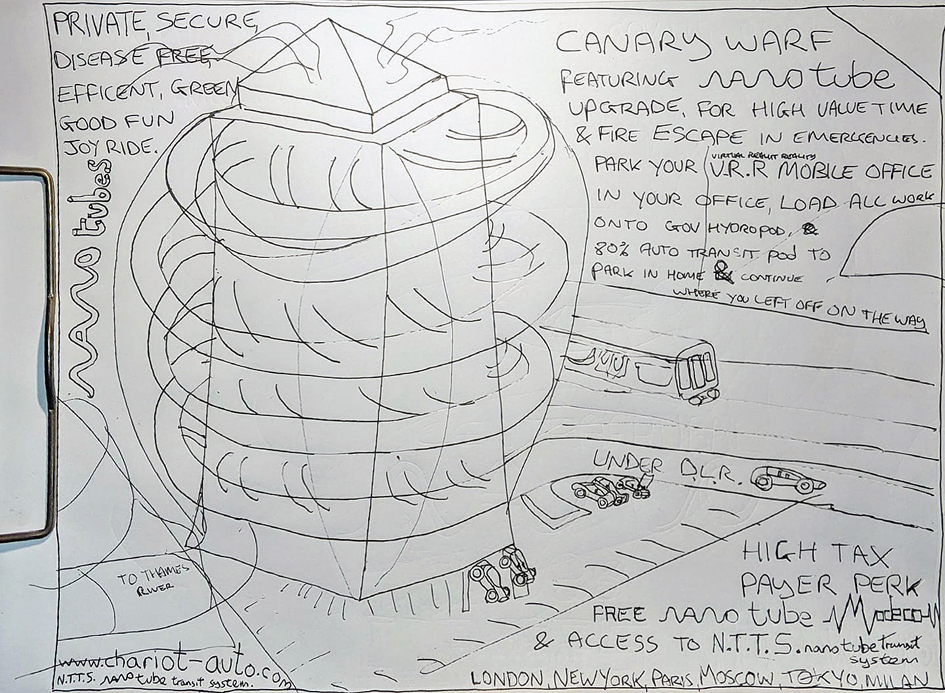 PRIVATE, SECURE,
DISEASE FREE,
EFFICENT, GREEN
GOOD FUN
JOY RIDE.
nano tubes
CANARY WARF
FEATURING nano tube
UPGRADE, FOR HIGH VALUE TIME
& FIRE ESCAPE IN EMERGENCIES.
VIRTUAL REALITY
PARK YOUR V.R.R MOBILE OFFICE
IN YOUR OFFICE, LOAD ALL WORK
ONTO GOV HYDROPOD, &
80% AUTO TRANSIT POD TO
PARK IN HOME & CONTINUE
WHERE YOU LEFT OFF ON THE WAY
UNDER D.L.R.
TO THAMES
RIVER
HIGH TAX
PAYER PERK
FREE nano tube
& ACCESS TO N.T.T.S. nano tube transit
system
LONDON, NEWYORK, PARIS, MOSCOW, TOKYO, MILAN
www.chariot-auto.com
N.T.T.S. nano tube transit system.